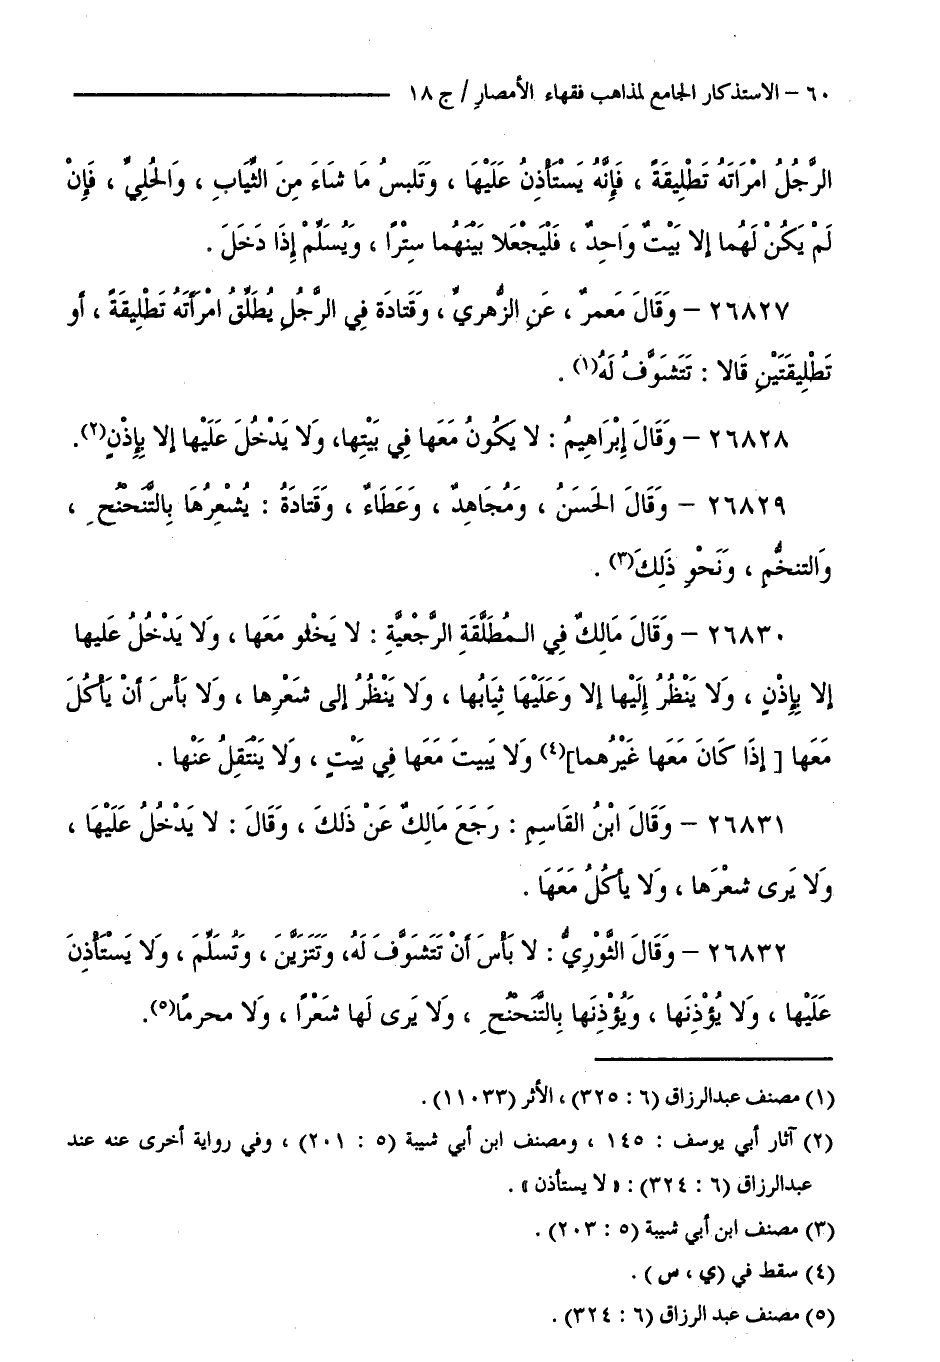 ٦٠ – الاستذكار الجامع لمذاهب فقهاء الأمصار / ج ١٨
الرَّجُلُ امْرَاتَهُ تَطْلِيقَةً ، فَإِنَّهُ يَسْتَأْذِنُ عَلَيْهَا ، وَتَلبسُ مَا شاءَ مِنَ الثَّيَابِ ، وَالحُلِيِّ ، فَإِنْ
لَمْ يَكُنْ لَهُما إلا بَيْتٌ وَاحِدٌ ، فَلْيَجْعَلا بَيْنَهُما سِتْرًا ، وَيُسَلِّمْ إِذَا دَخَلَ .
٢٦٨٢٧ – وَقَالَ مَعمرٌ ، عَنِ الزُّهريِّ ، وَقَتَادَة فِي الرَّجُلِ يُطَلِّقُ امْرَأَتَهُ تَطْلِيقَةً ، أو
تَطْلِيقَتَيْنِ قَالا : تَتَشَوَّفُ لَهُ(١) .
٢٦٨٢٨ – وَقَالَ إِبْرَاهِيمُ : لا يَكُونُ مَعَها فِي بَيْتِها، وَلا يَدْخُلَ عَلَيْها إلا بِإِذْنٍ(٢).
٢٦٨٢٩ – وَقَالَ الحَسَنُ ، وَمُجَاهِدٌ ، وَعَطَاءٌ ، وَقَتادَةُ : يُشْعِرُهَا بِالتَّنَحْنُحِ ،
وَالتنخُّمِ ، وَنَحْوِ ذَلِكَ(٣) .
٢٦٨٣٠ – وَقَالَ مَالِكٌ فِي الـمُطَلَّقَةِ الرَّجْعِيَّةِ : لا يَخْلو مَعَها ، وَلا يَدْخُلُ عَليها
إلا بِإِذْنٍ ، وَلا يَنْظُرُ إِلَيْها إلا وَعَلَيْهَا ثِيَابُها ، وَلا يَنْظُرُ إلى شَعْرِها ، وَلا بَأْسَ أَنْ يَأْكُلَ
مَعَها [ إذَا كَانَ مَعَها غَيْرُهما](٤) وَلا يَبيتَ مَعَها فِي بَيْتٍ ، وَلا يَنْتَقِلُ عَنْها .
٢٦٨٣١ – وَقَالَ ابْنُ القَاسِمِ : رَجَعَ مَالِكٌ عَنْ ذَلكَ ، وَقَالَ : لا يَدْخُلُ عَلَيْهَا ،
وَلا يَرى شعْرَها ، وَلا يأكُلُ مَعَهَا .
٢٦٨٣٢ – وَقَالَ الثَّوْرِيُّ : لا بَأْسَ أَنْ تَتَشَوَّفَ لَهُ، وَتَتَزَيَّنَ ، وَتُسَلِّمَ ، وَلا يَسْتَأْذِنَ
عَلَيْها ، وَلا يُؤْذِنَها ، وَيُؤْذِنَها بِالتَّنَحْنُحِ ، وَلا يَرى لَها شَعْرًا ، وَلا محرمًا(٥).
(١) مصنف عبدالرزاق (٦ : ٣٢٥) ، الأثر (١١٠٣٣) .
(٢) آثار أبي يوسف : ١٤٥ ، ومصنف ابن أبي شيبة (٥ : ٢٠١) ، وفي رواية أخرى عنه عند
عبدالرزاق (٦ : ٣٢٤) : « لا يستأذن » .
(٣) مصنف ابن أبي شيبة (٥ : ٢٠٣) .
(٤) سقط في (ي ، س) .
(٥) مصنف عبد الرزاق (٦ : ٣٢٤) .